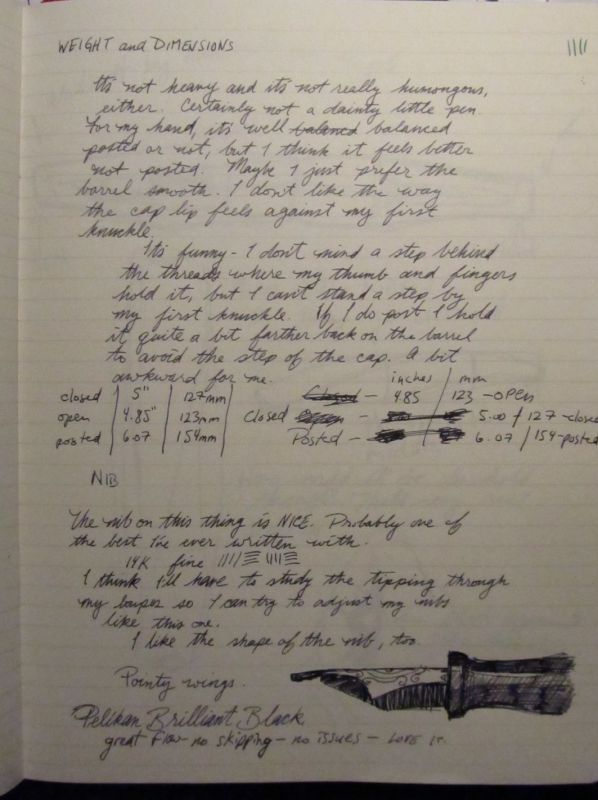 WEIGHT and DIMENSIONS
It's not heavy and it's not really humongous,
either. Certainly not a dainty little pen.
For my hand, it's well balanced balanced
posted or not, but I think it feels better
not posted. Maybe I just prefer the
barrel smooth. I don't like the way
the cap lip feels against my first
knuckle.
It's funny - I don't mind a step behind
the threads where my thumb and fingers
hold it, but I can't stand a step by
my first knuckle. If I do post I hold
it quite a bit farther back on the barrel
to avoid the step of the cap. A bit
awkward for me.
closed | 5" | 127mm |
open | 4.85" | 123mm |
posted | 6.07 | 154mm |
inches | mm
Closed - 4.85 | 123 - OPEN
Closed Open - 5.00 / 127 - closed
Posted - 6.07 / 154 - posted
NIB
The nib on this thing is NICE. Probably one of
the best I've ever written with.
14K fine
I think I'll have to study the tipping through
my loupes so I can try to adjust my nibs
like this one.
I like the shape of the nib, too.
Pointy wings.
Pelikan Brilliant Black
great flow - no skipping - no issues - LOVE IT.